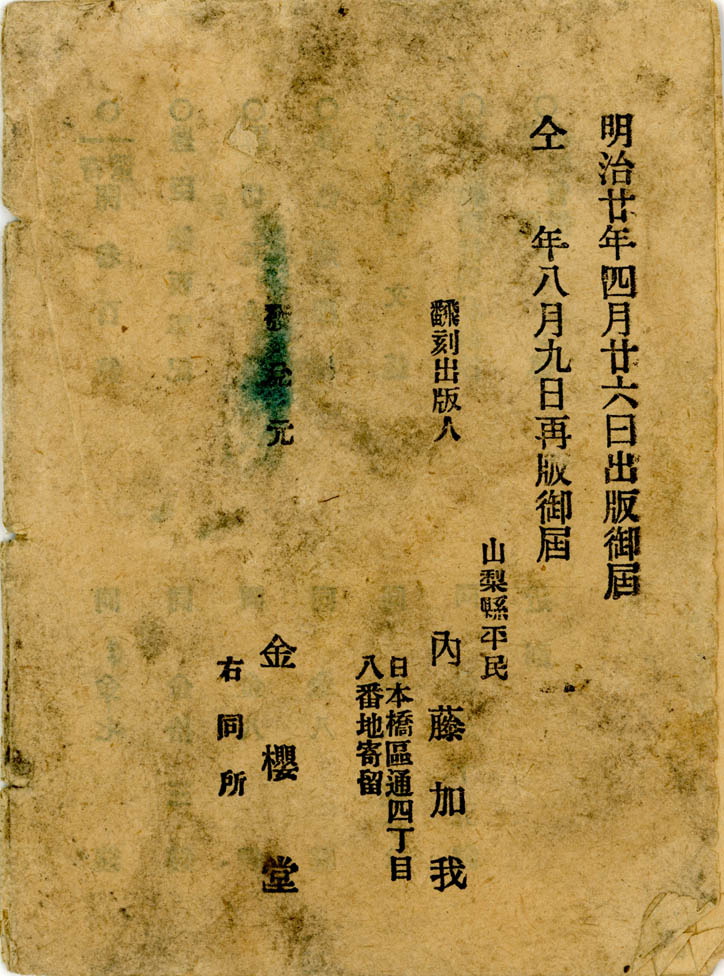 明治廿年四月廿六日出版御屆
仝　年八月九日再版御屆
山梨縣平民
翻刻出版人　內藤加我
日本橋區通四丁目
八番地寄留
發兌元　金櫻堂
右同所